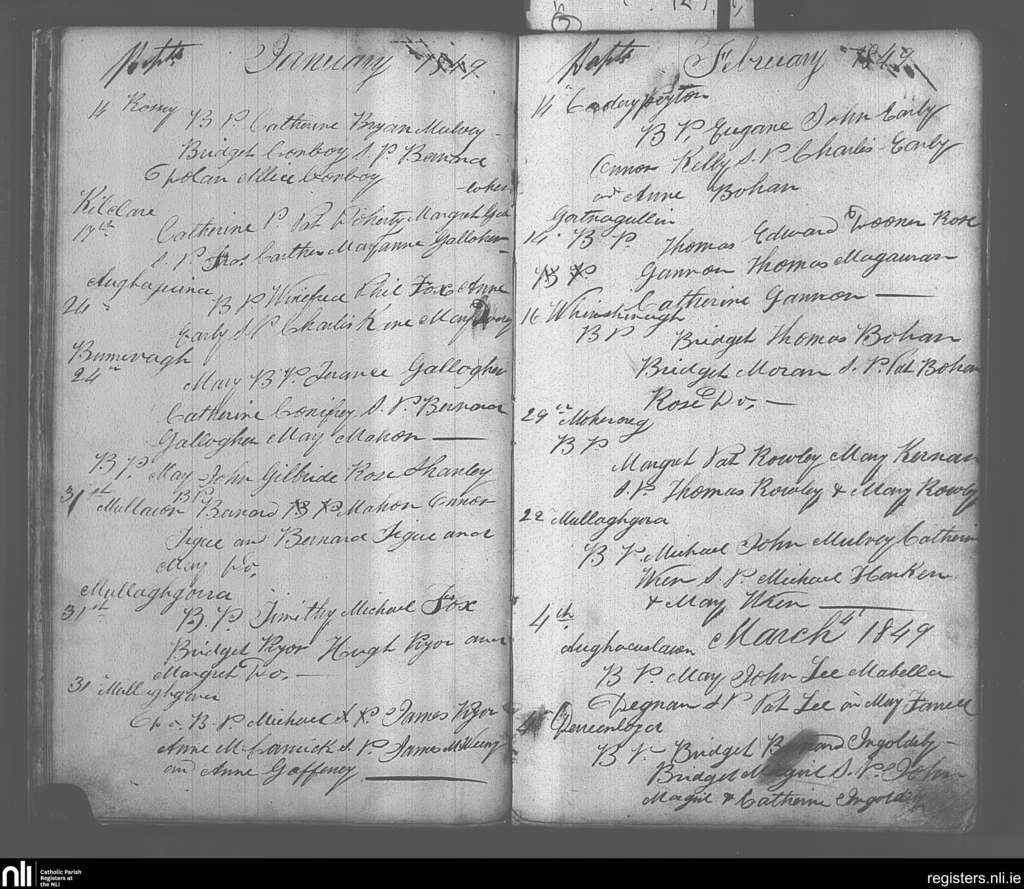 Bapts January 1849.
14 Rossey B P Catherine Bryan Mulvey
Bridget Conboy S. P. Barnard
Dolan Allice Conboy
Kildare
17th Catherine P. Pat Doherty Margret
S. P Thos. Carther May Anne Gallaher
24th B P Winefred Phil Fox Anne
Early S. P Charlis Kine May
24th Mary B P. Terance Gallogher
Catherine S. P. Bernard
Gallogher May Mahon
B. P. May John Gilbride Rose Shanley
B P
31st Mullason Barnard B P Mahon Connor
Tigue and Bernard Tigue and
May Do,
Mullaghgarra
31st B. P. Timithy Michael Fox
Bridget Pyor Hugh Pyor and
Margret Do,
31 Mullighgarra
B. P Michael James Pyor
Anne McCormick S. P James
and Anne Gaffeney
Bapts February 1849
14 Corderypeyton
B P Eugane John Early
Connor Kelly S. P Charlis Early
and Anne Bohan
Gortnagullin
14 B P Thomas Edward Rose
B P Gannon Thomas Magauran
Catherine Gannon
16
B P Bridget Thomas Bohan
Bridget Moran S. P. Pat Bohan
Rose Do,
29
B P
Margret Pat Rowley Mary Kernan
S. P Thomas Rowley & Mary Rowley
22 Mullaghgara
B P. Michael John Mulvey Catherin
Wren S. P Michael Harken
& May Wren
4th March 4th 1849
B P May John Lee Mabella
Degnan S P Pat Lee an May Farrell
4
B P Bridget Barnard Ingoldsby
Bridget S. P. John
& Catherine Ingoldsby
nli
Catholic Parish
Registers at
the NLI
registers.nli.ie